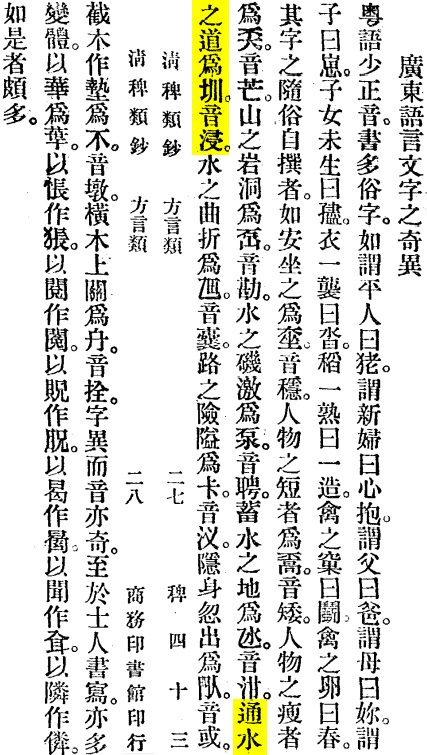 廣東語言文字之奇異
粵語少正音。書多俗字。如謂平人曰狫。謂新婦曰心抱。謂父曰爸。謂母曰妳。謂
子曰崽。子女未生曰衣一襲曰沓。稻一熟曰一造。禽之窠曰鬭。禽之卵曰春。
其字之隨俗自撰者。如安坐之爲音穩。人物之短者爲音矮。人物之瘦者
爲奀。音芒。山之岩洞爲音勘。水之磯激爲泵。音聘。蓄水之地爲氹。音泔。通水
之道爲圳。音浸。水之曲折爲乪。音囊。路之險隘爲卡。音汊。隱身忽出爲音或。
淸稗類鈔 方言類 二七 稗四十三
淸稗類鈔 方言類 二八 商務印書館印行
截木作墊爲不。音墩。橫木上關爲音拴。字異而音亦奇。至於士人書寫。亦多
變體。以華爲以悵作以閱作以貺作以曷作以聞作以隣作僯。
如是者頗多。